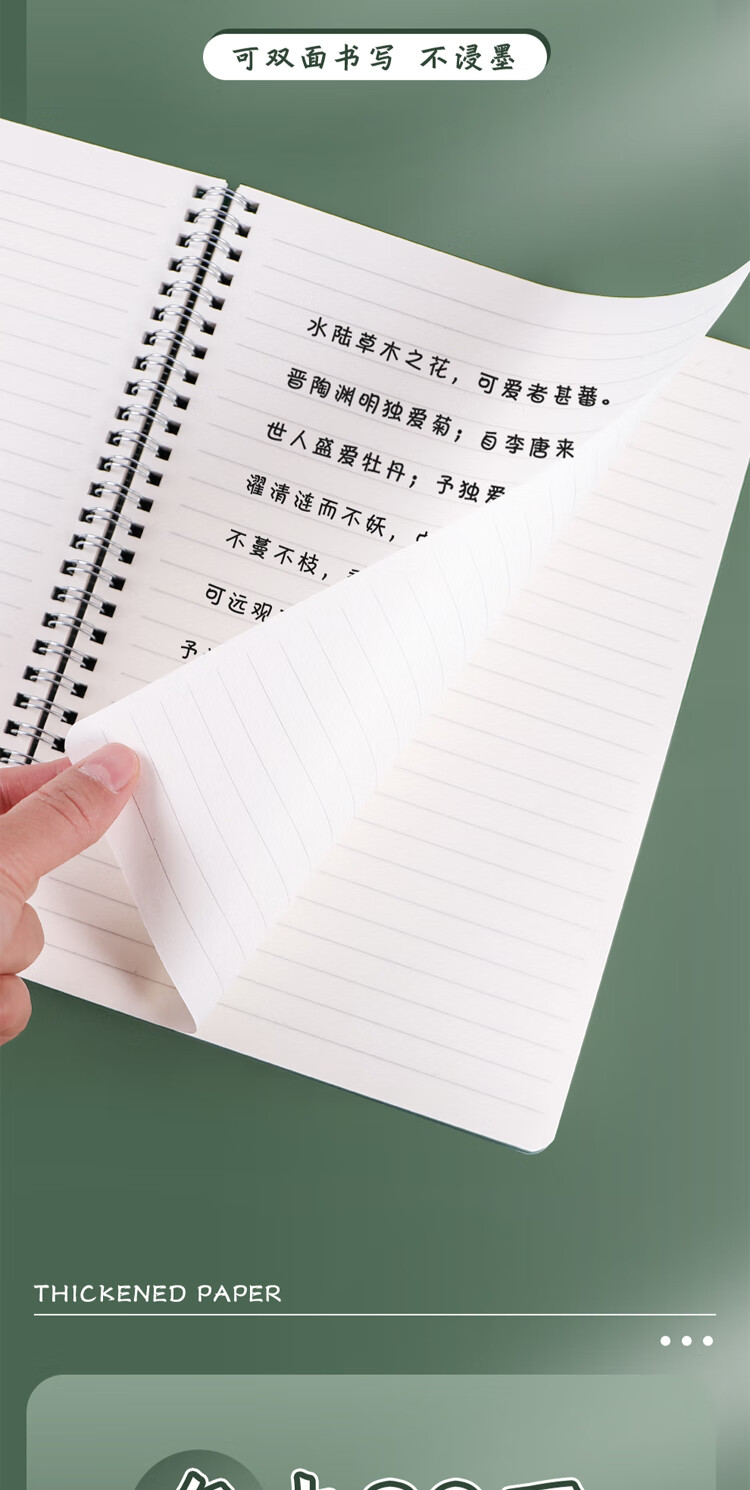 可双面书写 不浸墨
水陆草木之花，可爱者甚蕃。
晋陶渊明独爱菊；自李唐来
世人盛爱牡丹；予独爱
濯清涟而不妖，
不蔓不枝，
可远观
予
THICKENED PAPER